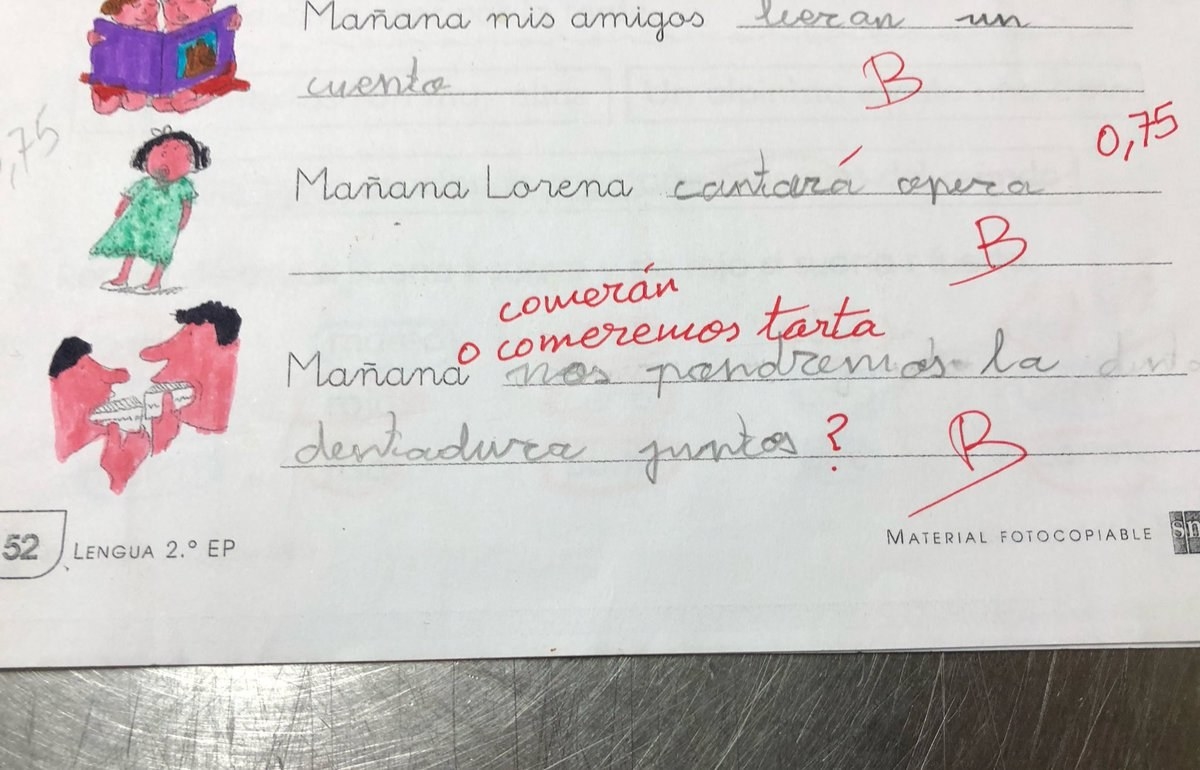 Mañana mis amigos leeran un
cuento
B
0,75
,75
Mañana Lorena cantará opera
B
comerán
o comeremos tarta
Mañana nos pondremos la
dentadura juntos ?
B
52 LENGUA 2.º EP
MATERIAL FOTOCOPIABLE sm